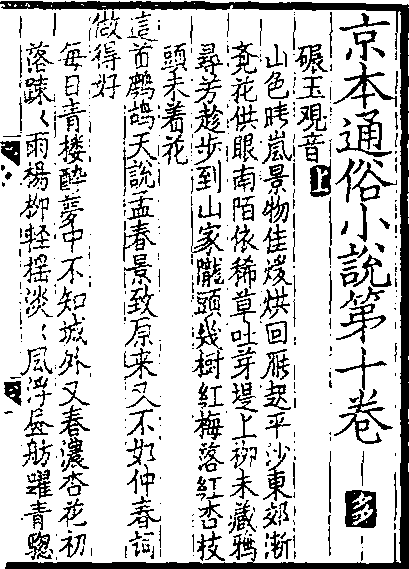 京本通俗小說第十卷 多
碾玉觀音 上
山色晴嵐景物佳煖烘回雁起平沙東郊漸
覺花供眼南陌依稀草吐芽堤上柳未藏鴉
尋芳趁步到山家隴頭幾樹紅梅落紅杏枝
頭未着花
這首鷓鴣天說孟春景致原来又不如仲春詞
做得好
每日青樓醉夢中不知城外又春濃杏花初
落踈〻雨楊柳輕搖淡〻風浮畫舫躍青驄